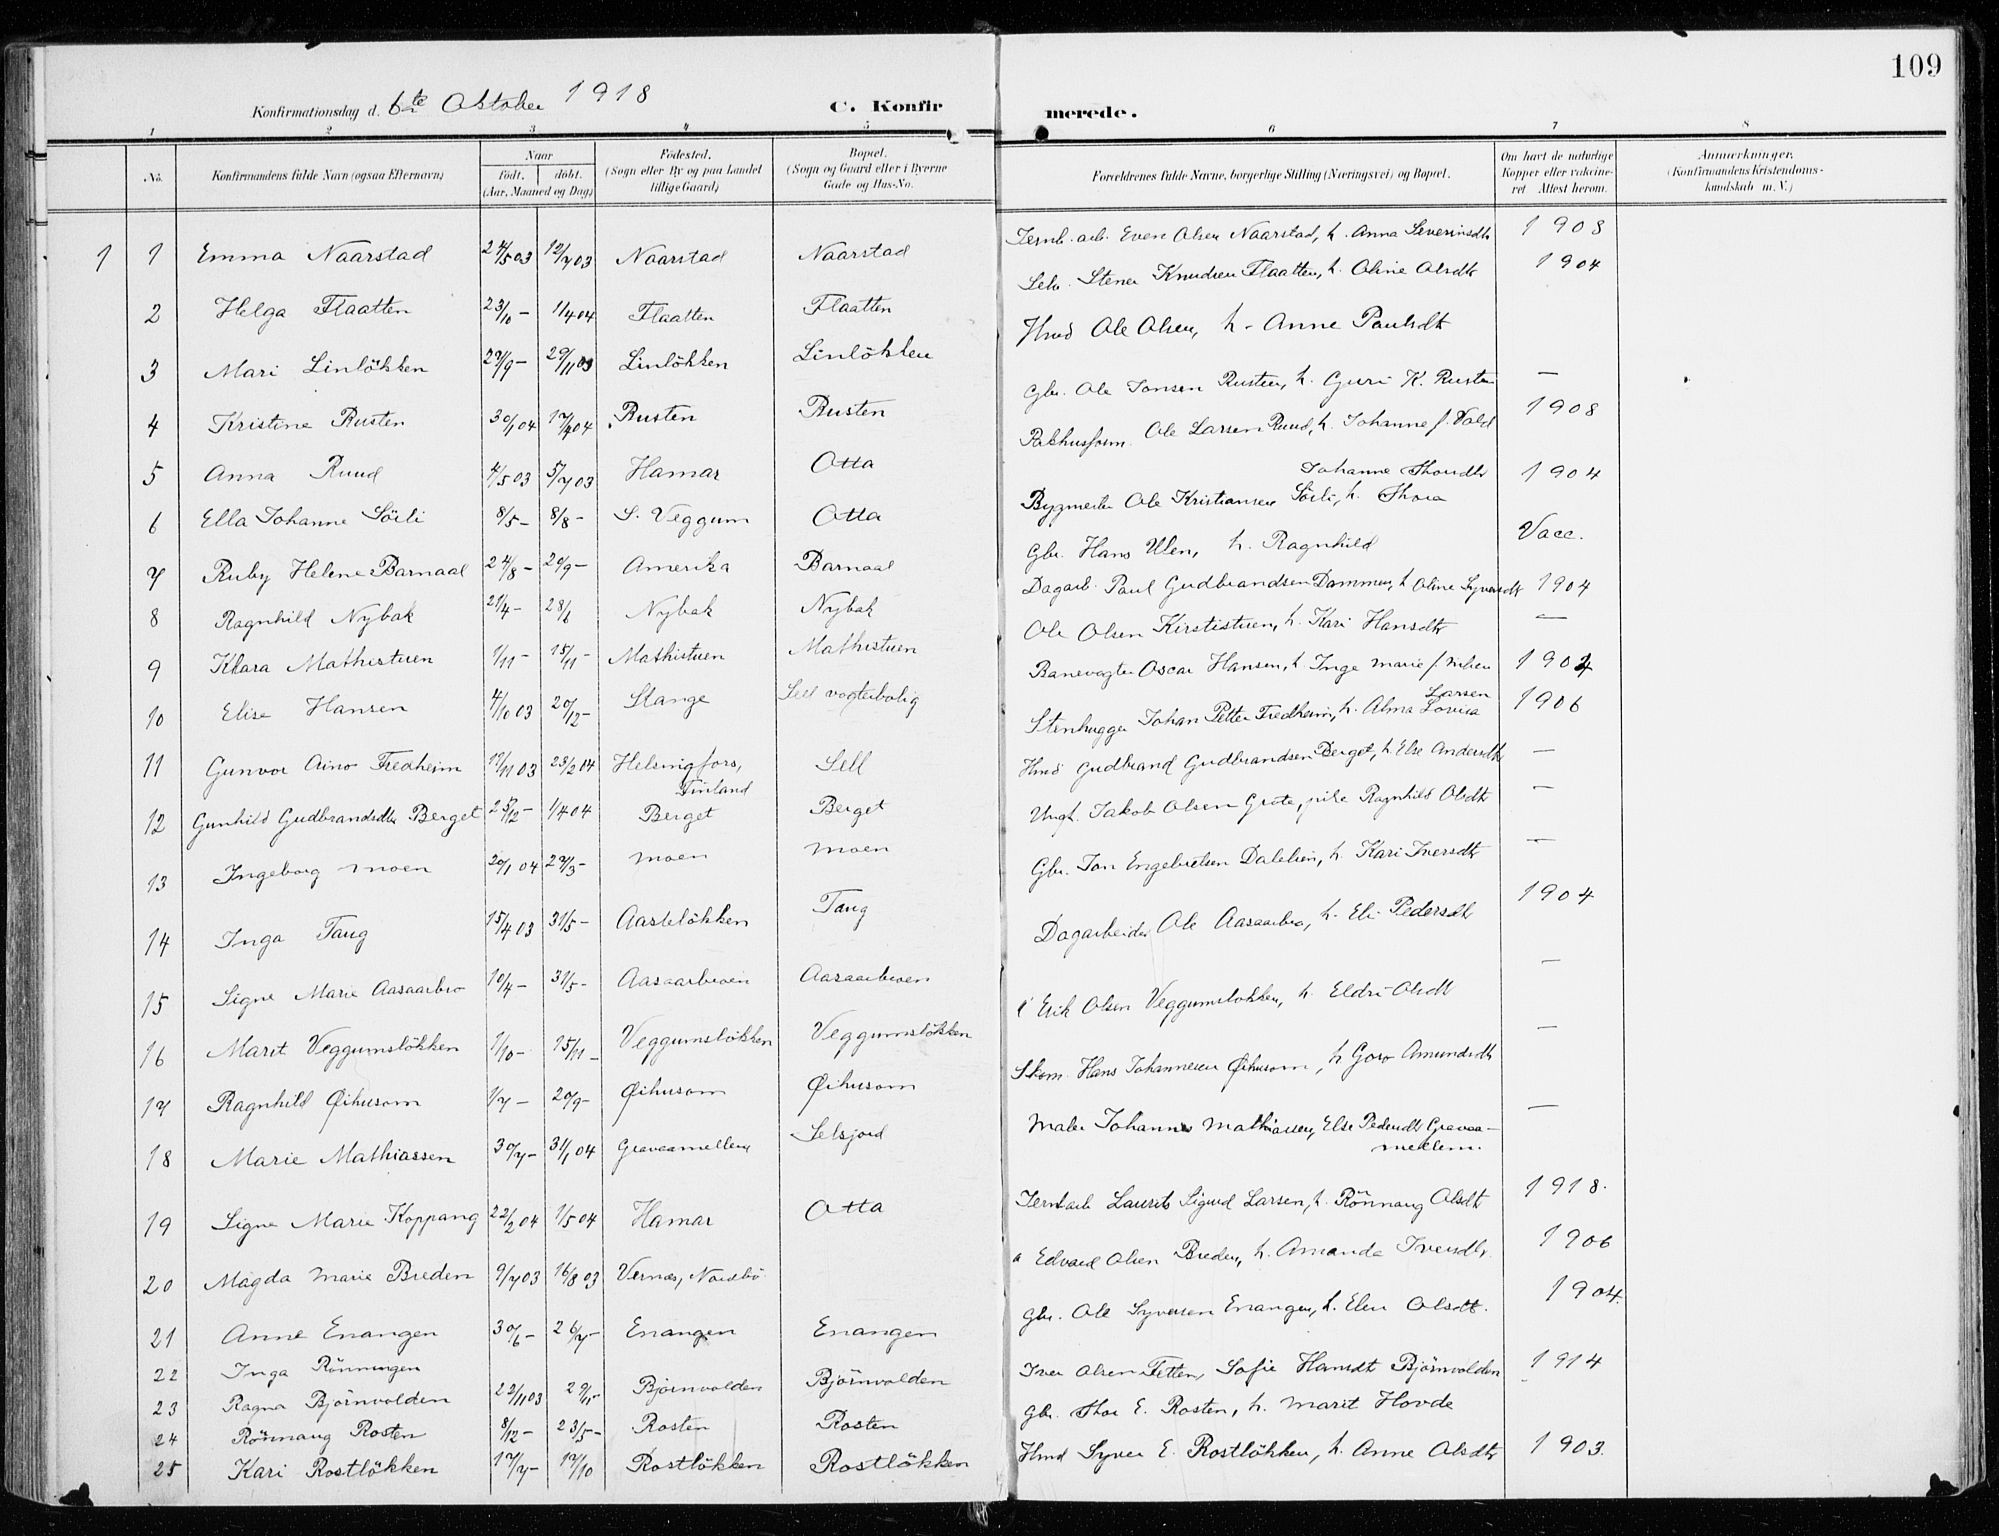 109
Konfirmationsdag d. 6te Oktober 1918
C. Konfirmerede.
1 2 3 4 5 6 7 8
No. | Konfirmandens fulde Navn (ogsaa Efternavn) | Naar født. døbt. (Aar, Maaned og Dag) | Fødested. (Sogn eller By og paa Landet tillige Gaard) | Bopæl. (Sogn og Gaard eller i Byerne Gade og Hus-No. | Forældrenes fulde Navne, borgerlige Stilling (Næringsvei) og Bopæl. | Om havt de naturlige Kopper eller vakcineret Attest herom. | Anmærkninger. (Konfirmandens Kristendomskundskab m. V.)
1 1 Emma Naarstad 24/5 03 12/7 03 Naarstad Naarstad Jernb. arb. Even Olsen Naarstad, h. Anna Severinsdtr 1908
2 Helga Flaatten 23/10 - 1/4 04 Flaatten Flaatten Selv. Stener Knudsen Flaatten, h. Oline Olsdtr 1904
3 Mari Linløkken 27/9 - 29/11 03 Linløkken Linløkken Hmd Ole Olsen, h. Anne Paulsdt
4 Kristine Rusten 30/1 04 17/4 04 Rusten Rusten Gbr. Ole Jonsen Rusten, h. Guri K. Rusten —
5 Anna Ruud 4/5 03 5/7 03 Hamar Otta Pakhusform. Ole Larsen Ruud, h. Johanne f. Vold 1908
6 Ella Johanne Sörli 8/5 - 8/8 - S. Veggum Otta Bygmester Ole Kristiansen Sörli, h. Thora Johanne Thorsdtr 1904
7 Ruby Helene Barnaal 24/8 - 20/9 - Amerika Barnaal Gbr. Hans Ulen, h. Ragnhild Vacc.
8 Ragnhild Nybak 21/4 - 28/6 Nybak Nybak Dagarb. Paul Gudbrandsen Dammen, h Oline Syversdt 1904
9 Klara Mathistuen 1/11 - 15/11 - Mathistuen Mathistuen Ole Olsen Kirstistuen, h. Kari Hansdtr —
10 Elise Hansen 4/10 03 20/12 - Stange Sell vogterbolig Banevogter Oscar Hansen, h Inge Marie f. Nilsen 1904
11 Gunvor Aino Fredheim 17/11 03 23/2 04 Helsingfors, Finland Sell Stenhugger Johan Petter Fredheim, h. Alma Lovisa Larsen 1906
12 Gunhild Gudbrandsdtr Berget 25/12 - 1/4 04 Berget Berget Hmd Gudbrand Gudbrandsen Berget, h. Else Andersdtr —
13 Ingeborg Moen 20/1 04 29/3 - Moen Moen Ungk. Jakob Olsen Grote, pike Ragnhild Olsdtr —
14 Inga Taug 15/4 03 31/5 - Aasteløkken Taug Gbr. Jon Engebretsen Dalelien, h. Kari Iversdtr —
15 Signe Marie Aasaarbro 10/4 - 31/5 - Aasaarbroen Aasaarbroen Dagarbeider Ole Aasaarbro, h. Eli Pedersdt 1904
16 Marit Veggumsløkken 1/10 - 15/11 - Veggumsløkken Veggumsløkken Erik Olsen Veggumsløkken, h. Eldri Olsdt —
17 Ragnhild Øihusom 1/7 - 20/9 - Øihusom Øihusom Skom. Hans Johannesen Øihusom, h Goro Amundsdtr —
18 Marie Mathiassen 30/7 - 31/1 04 Gravaamellem Selsjord Maler Johannes Mathiassen, Else Pedersdt Gravaamellem. —
19 Signe Marie Koppang 22/2 04 1/5 04 Hamar Otta Jernbarb Laurits Sigurd Larsen, h. Rönnaug Olsdt 1918.
20 Magda Marie Breden 9/7 03 16/8 03 Vernæs, Nordbö Edvard Olsen Breden, h. Amanda Iversdtr. 1906
21 Anne Enangen 30/6 - 26/7 - Enangen Enangen Gbr. Ole Syversen Enangen, h. Elen Olsdt. 1904.
22 Inga Rönningen
23 Ragna Björnvolden 22/11 03 29/11 - Björnvolden Björnvolden Iver Olsen Tetten, Sofie Hansdt Björnvolden 1914
24 Rönnaug Rosten 8/12 - 23/5 - Rosten Rosten Gbr. Thor E. Rosten, h. Marit Hovde
25 Kari Rostløkken 17/7 - 17/10 Rostløkken Rostløkken Hmd Syver E. Rostløkken, h. Anne Olsdtr 1903.